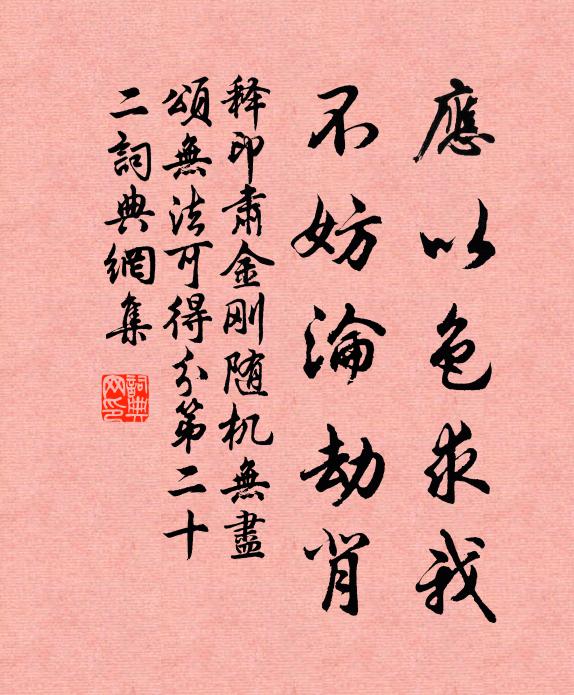 應以色求我
不妨淪劫背
释印肃金刚随机無盡
頌無法可得分第二十
二詞典網集
詞典网印